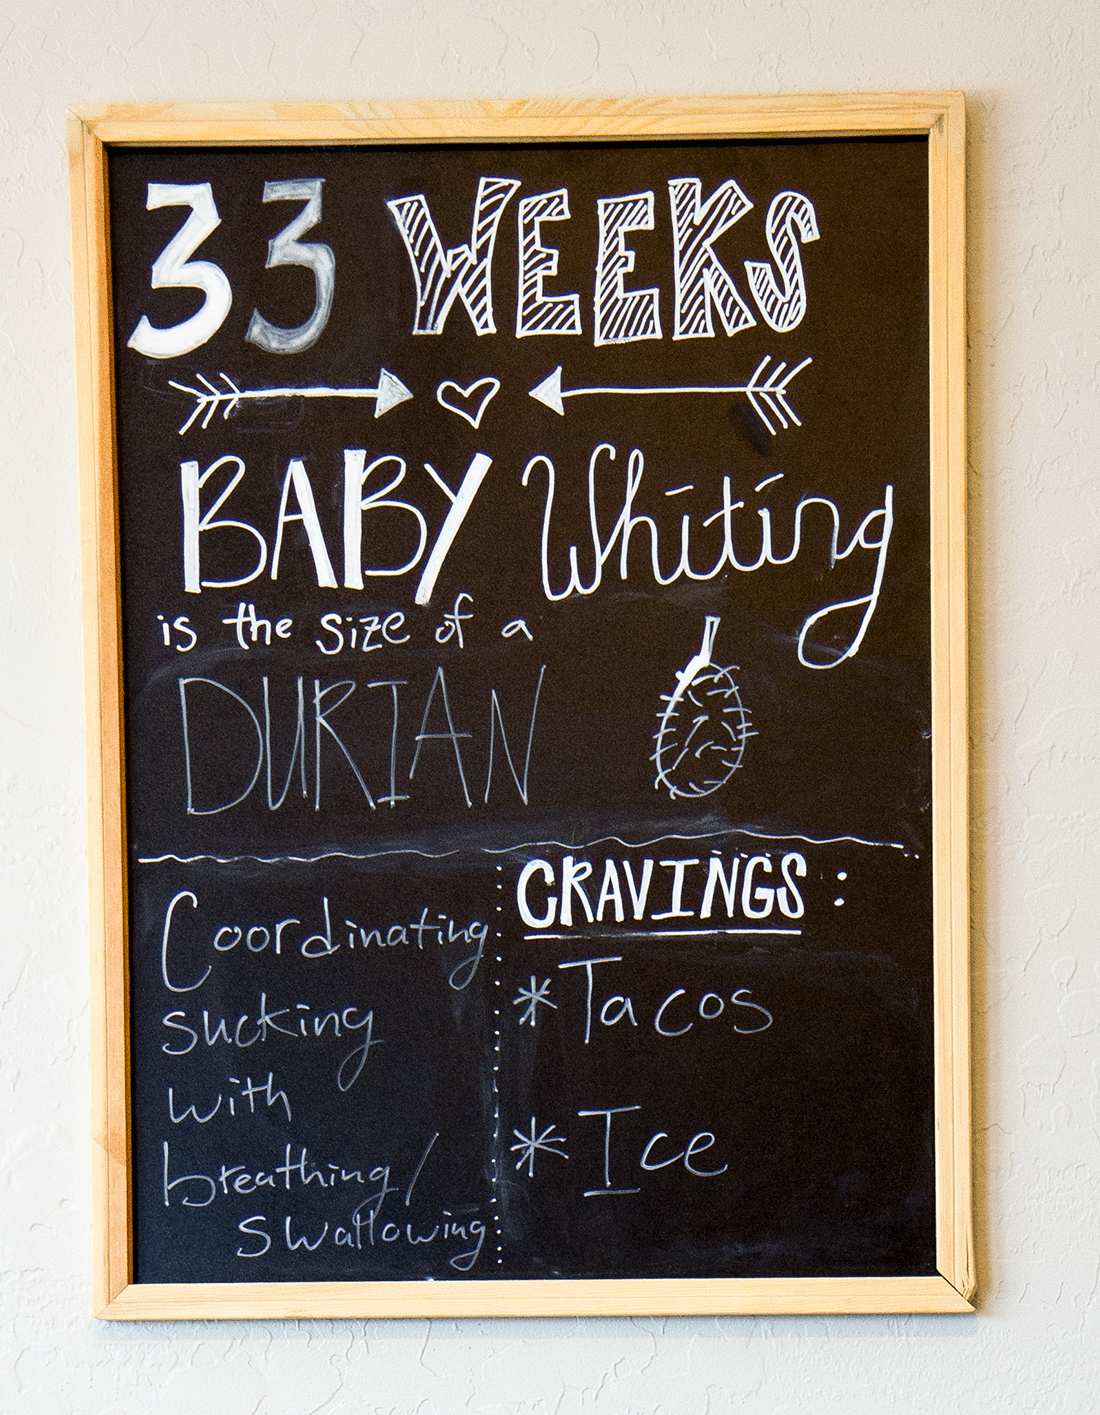 33 WEEKS
BABY Whiting
is the size of a
DURIAN
Coordinating
sucking
with
breathing/
swallowing
CRAVINGS:
* Tacos
* Ice